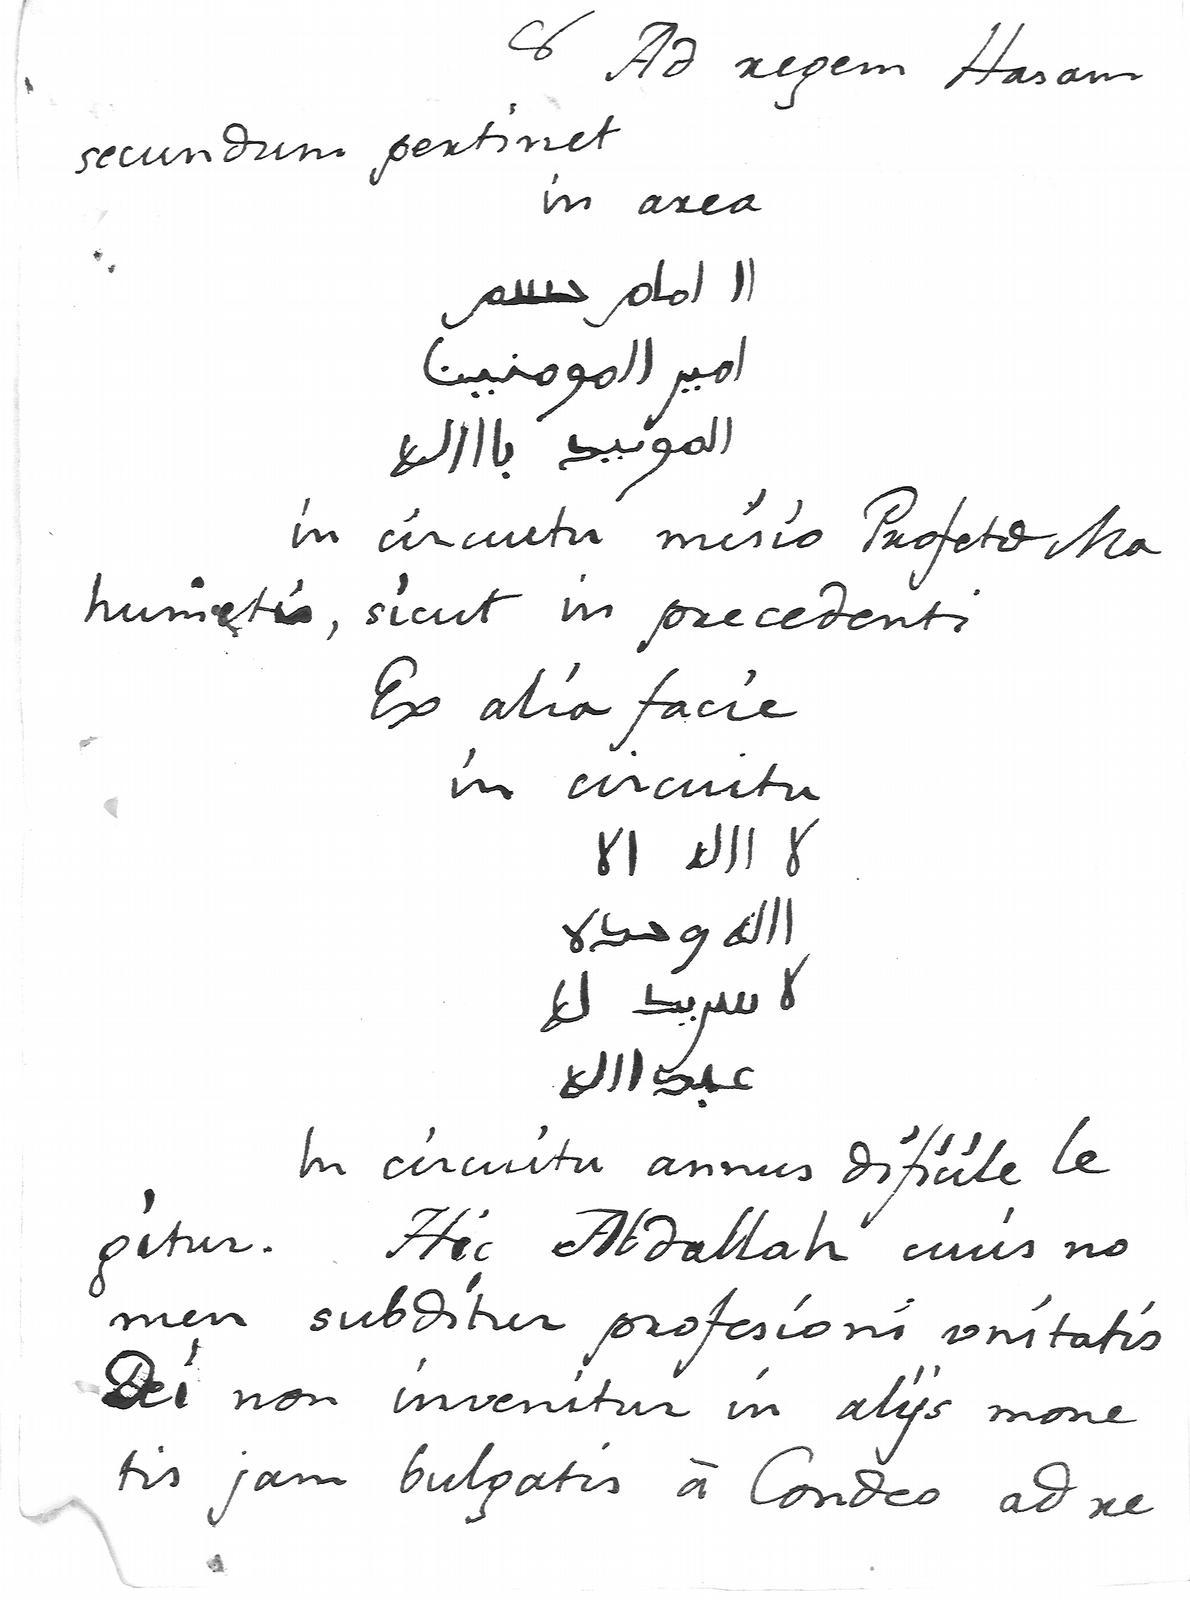 8 Ad regem Hasam
secundum pertinet
in area
الامام حسم
امير المومنين
المويد باالله
in circuitu misio Profetæ Ma
humetis, sicut in precedenti
Ex alia facie
in circuitu
لا االه الا
الله وحده
لا سريد له
عبدالله
In circuitu annus dificile le
gitur. Hic Abdallah cuius no
men subditur profesioni vnitatis
Dei non invenitur in alijs mone
tis jam bulgatis â Condeo ad re